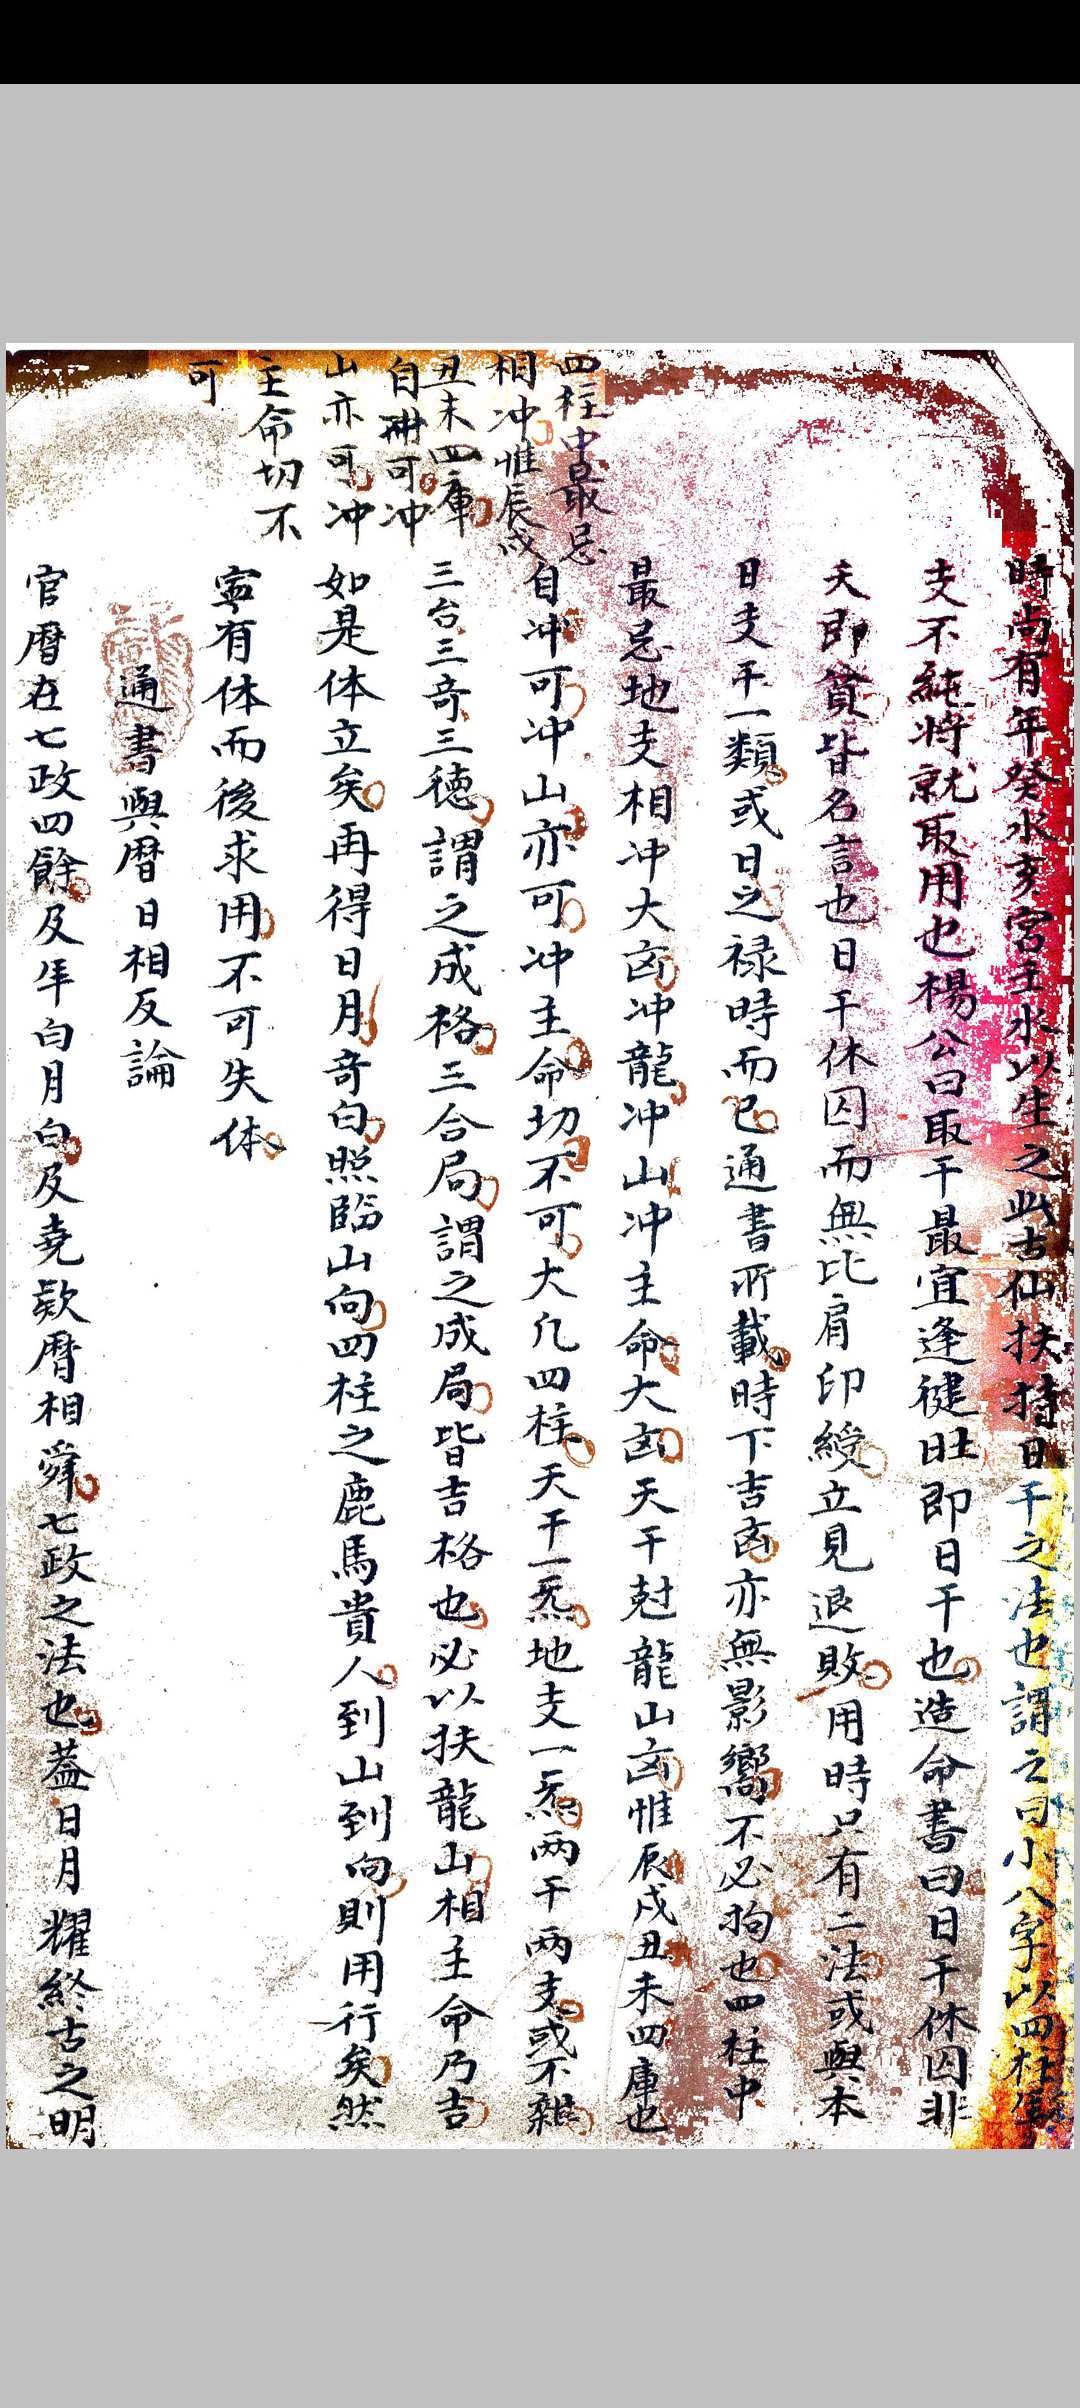 四柱中最忌
相冲惟辰戌
丑未四庫
自冲可冲
山亦可冲
主命切不
可
時尚有年癸水亥宮主水以生之此古仙扶持日干之法也謂之曰小八字以四柱
支不純將就取用也楊公曰取干最宜逢健旺即日干也造命書曰日干休囚非
夭即貧皆名言也日干休囚而無比肩印綬立見退敗用時只有二法或與本
日支干一類或日之禄時而已通書所載時下吉凶亦無影嚮不必拘也四柱中
最忌地支相冲大凶冲龍冲山冲主命大凶天干尅龍山凶惟辰戌丑未四庫也
自冲可冲山亦可冲主命切不可大凡四柱天干一炁地支一炁兩干兩支或不雜
三台三奇三德謂之成格三合局謂之成局皆吉格也必以扶龍山相主命乃吉
如是体立矣再得日月奇白照臨山向四柱之鹿馬貴人到山到向則用行矣然
寧有体而後求用不可失体
通書與暦日相反論
官暦在七政四餘及年白月白及堯欽暦相舜七政之法也蓋日月耀終古之明